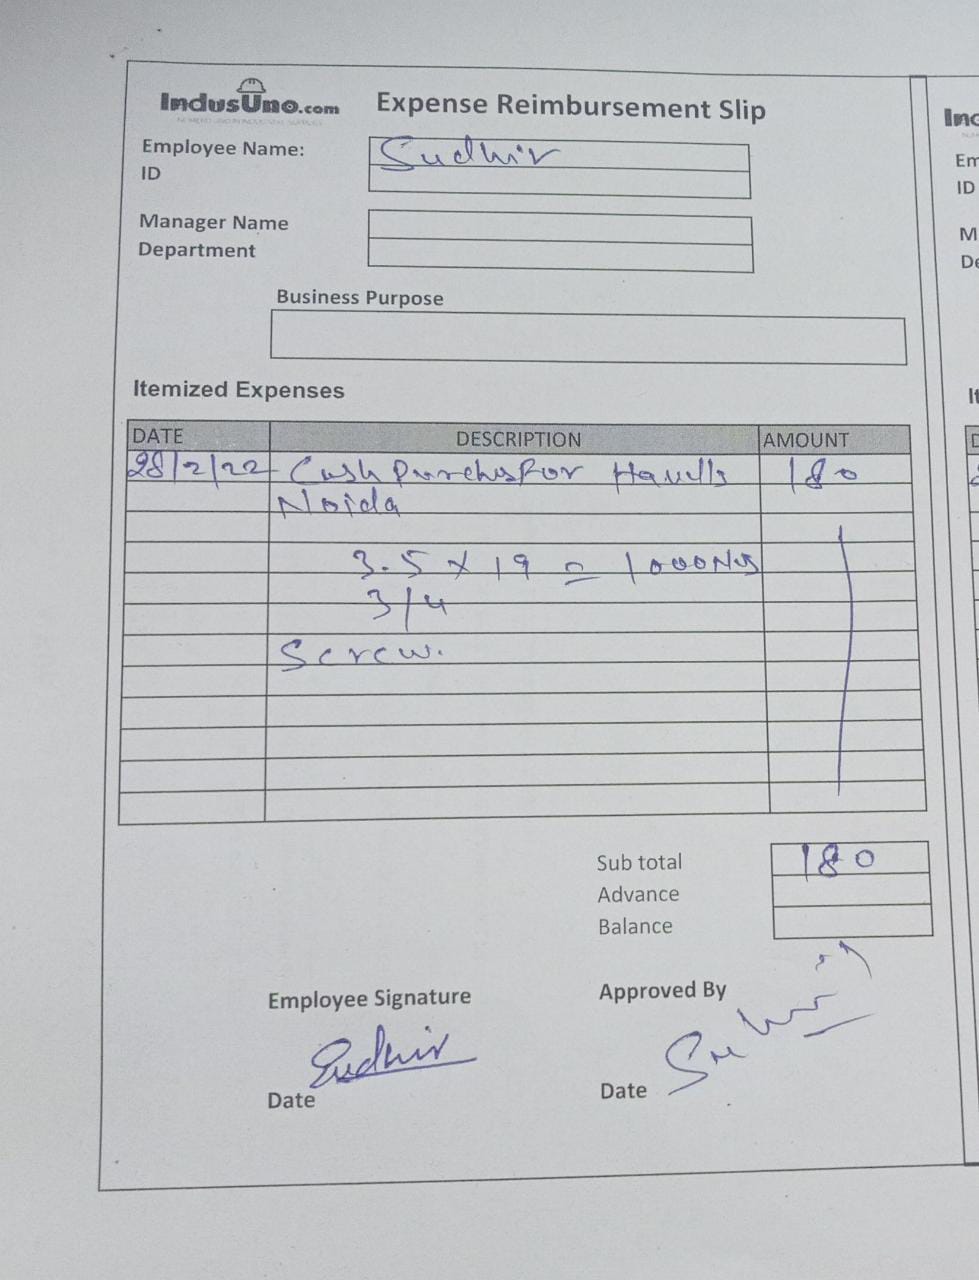 IndusUno.com
Expense Reimbursement Slip
Employee Name: Sudhir
ID
Manager Name
Department
Business Purpose
Itemized Expenses
DATE DESCRIPTION AMOUNT
28/2/22 Cash Purches For Havells 180
Noida
3.5 x 19 = 1000Nos
3/4
Screw.
Sub total 180
Advance
Balance
Employee Signature
Approved By
Sudhir
Date
Date
Ind
Em
ID
M
De
It
D